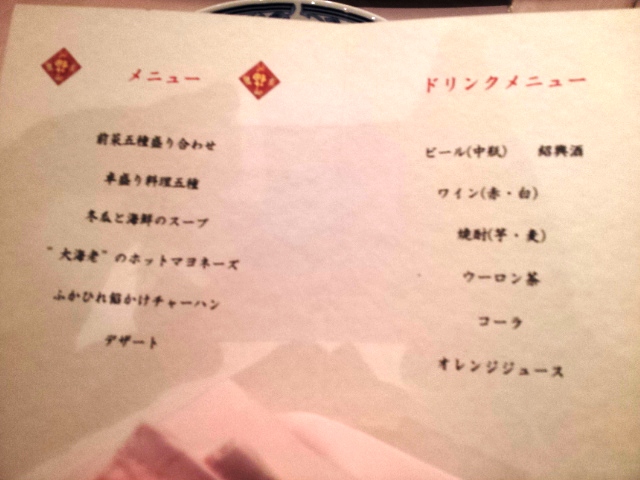 メニュー
前菜五種盛り合わせ
卓盛り料理五種
冬瓜と海鮮のスープ
"大海老"のホットマヨネーズ
ふかひれ餡かけチャーハン
デザート
ドリンクメニュー
ビール(中瓶) 紹興酒
ワイン(赤・白)
焼酎(芋・麦)
ウーロン茶
コーラ
オレンジジュース